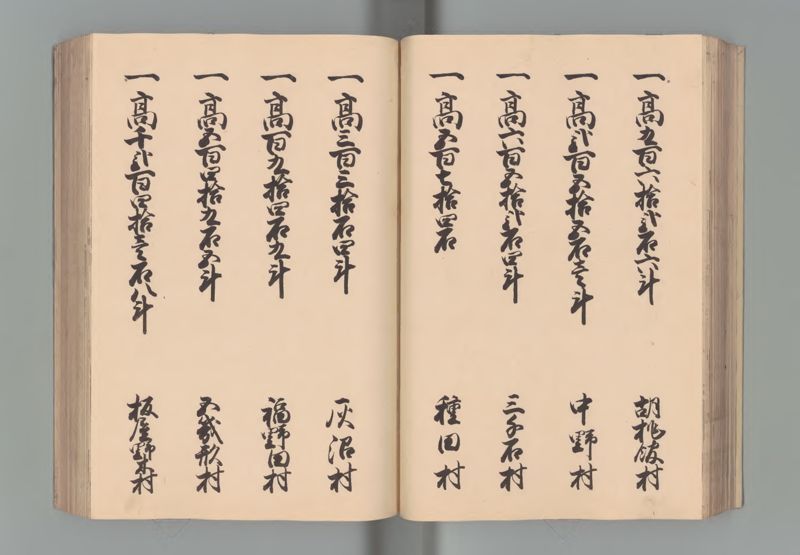 一高九百六拾弐石六斗 胡桃舘村
一高弐百五拾五石壱斗 中野村
一高六百五拾弐石四斗 三千石村
一高五百七拾四石 種田村
一高三百三拾石四斗 灰沼村
一高百九拾四石九斗 福野田村
一高五百四拾九石五斗 五幾形村
一高千弐百四拾壱石八斗 板屋野木村